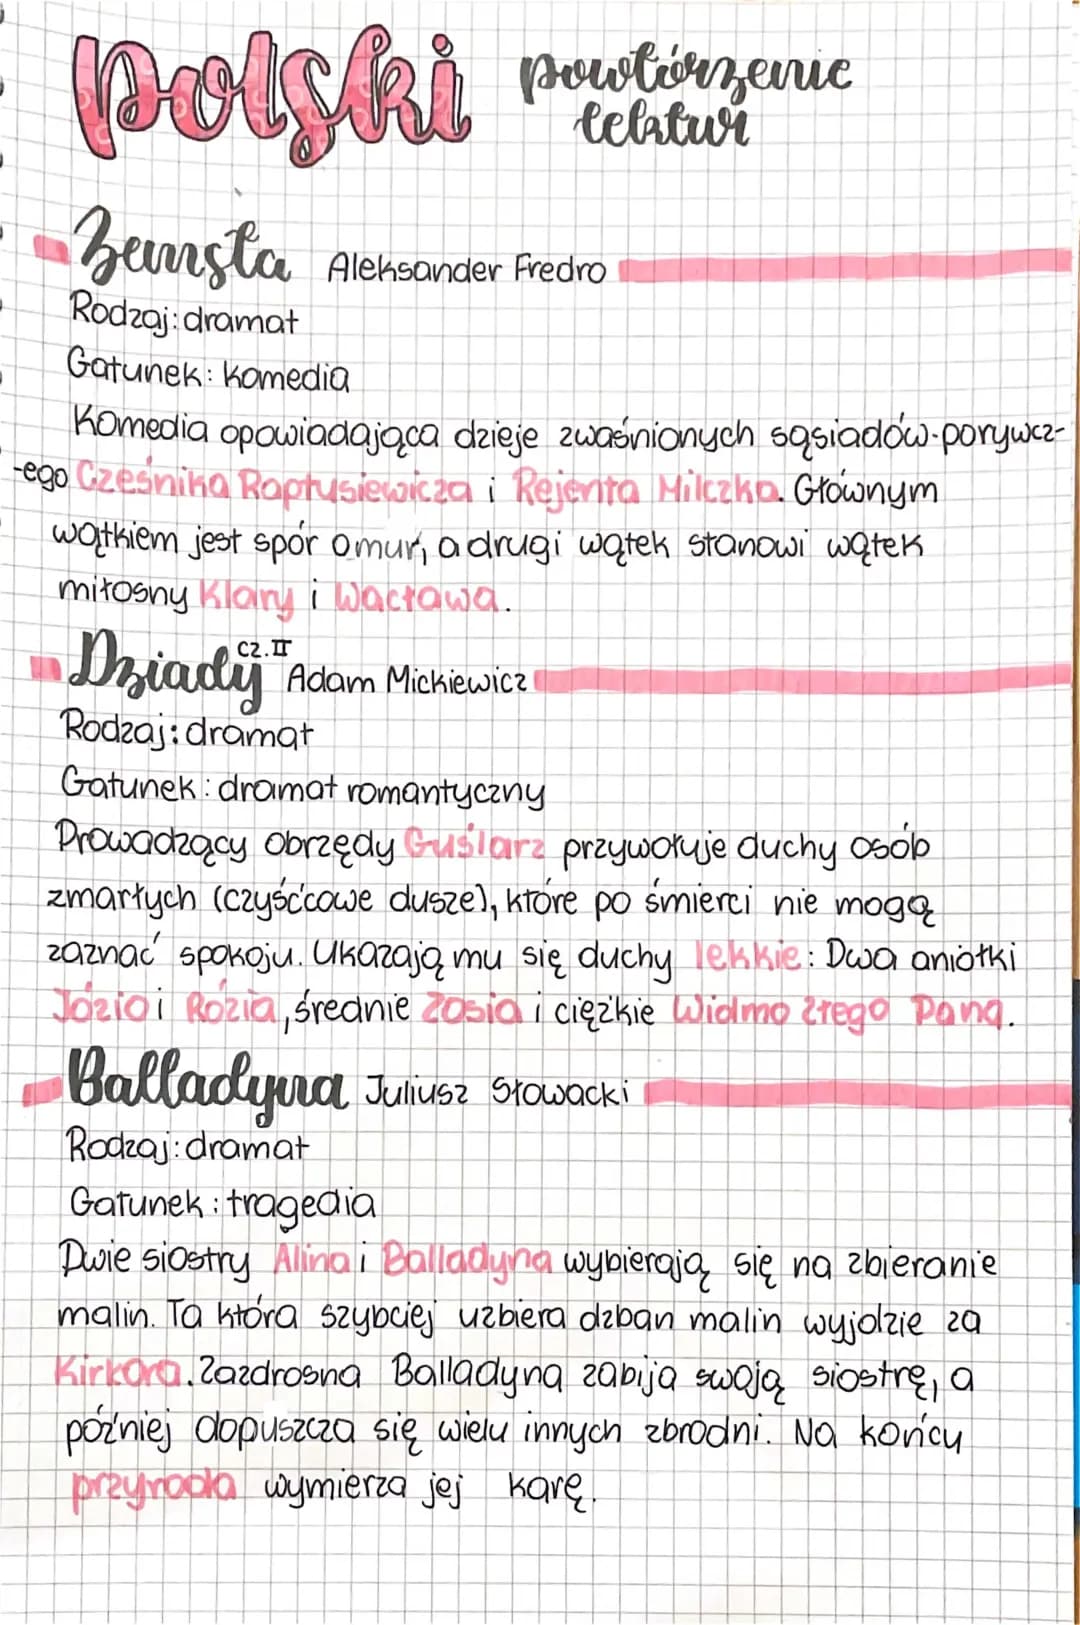 Polski powtórzenie
lektur
Zemsta Aleksander Fredro
Rodzaj: dramat
Gatunek: komedia
Komedia opowiadająca dzieje zwaśnionych sąsiadów-porywcz-
-ego Cześnika Raptusiewicza i Rejenta Milczka. Głównym
wątkiem jest spór o mur, a drugi wątek stanowi wątek
miłosny Klary i Wacława.
Dziady cz.II Adam Mickiewicz
Rodzaj: dramat
Gatunek: dramat romantyczny
Prowadzący obrzędy Guślarz przywołuje duchy osób
zmarłych (czyśćcowe dusze), które po śmierci nie mogą
zaznać spokoju. Ukazają mu się duchy lekkie: Dwa aniołki
Józio i Rózia, średnie Zosia i ciężkie Widmo złego Pana.
Balladyna Juliusz Słowacki
Rodzaj: dramat
Gatunek: tragedia
Dwie siostry Alina i Balladyna wybierają się na zbieranie
malin. Ta która szybciej uzbiera dzban malin wyjdzie za
Kirkora. Zazdrosna Balladyna zabija swoją siostrę, a
później dopuszcza się wielu innych zbrodni. Na końcu
przyroda wymierza jej karę.